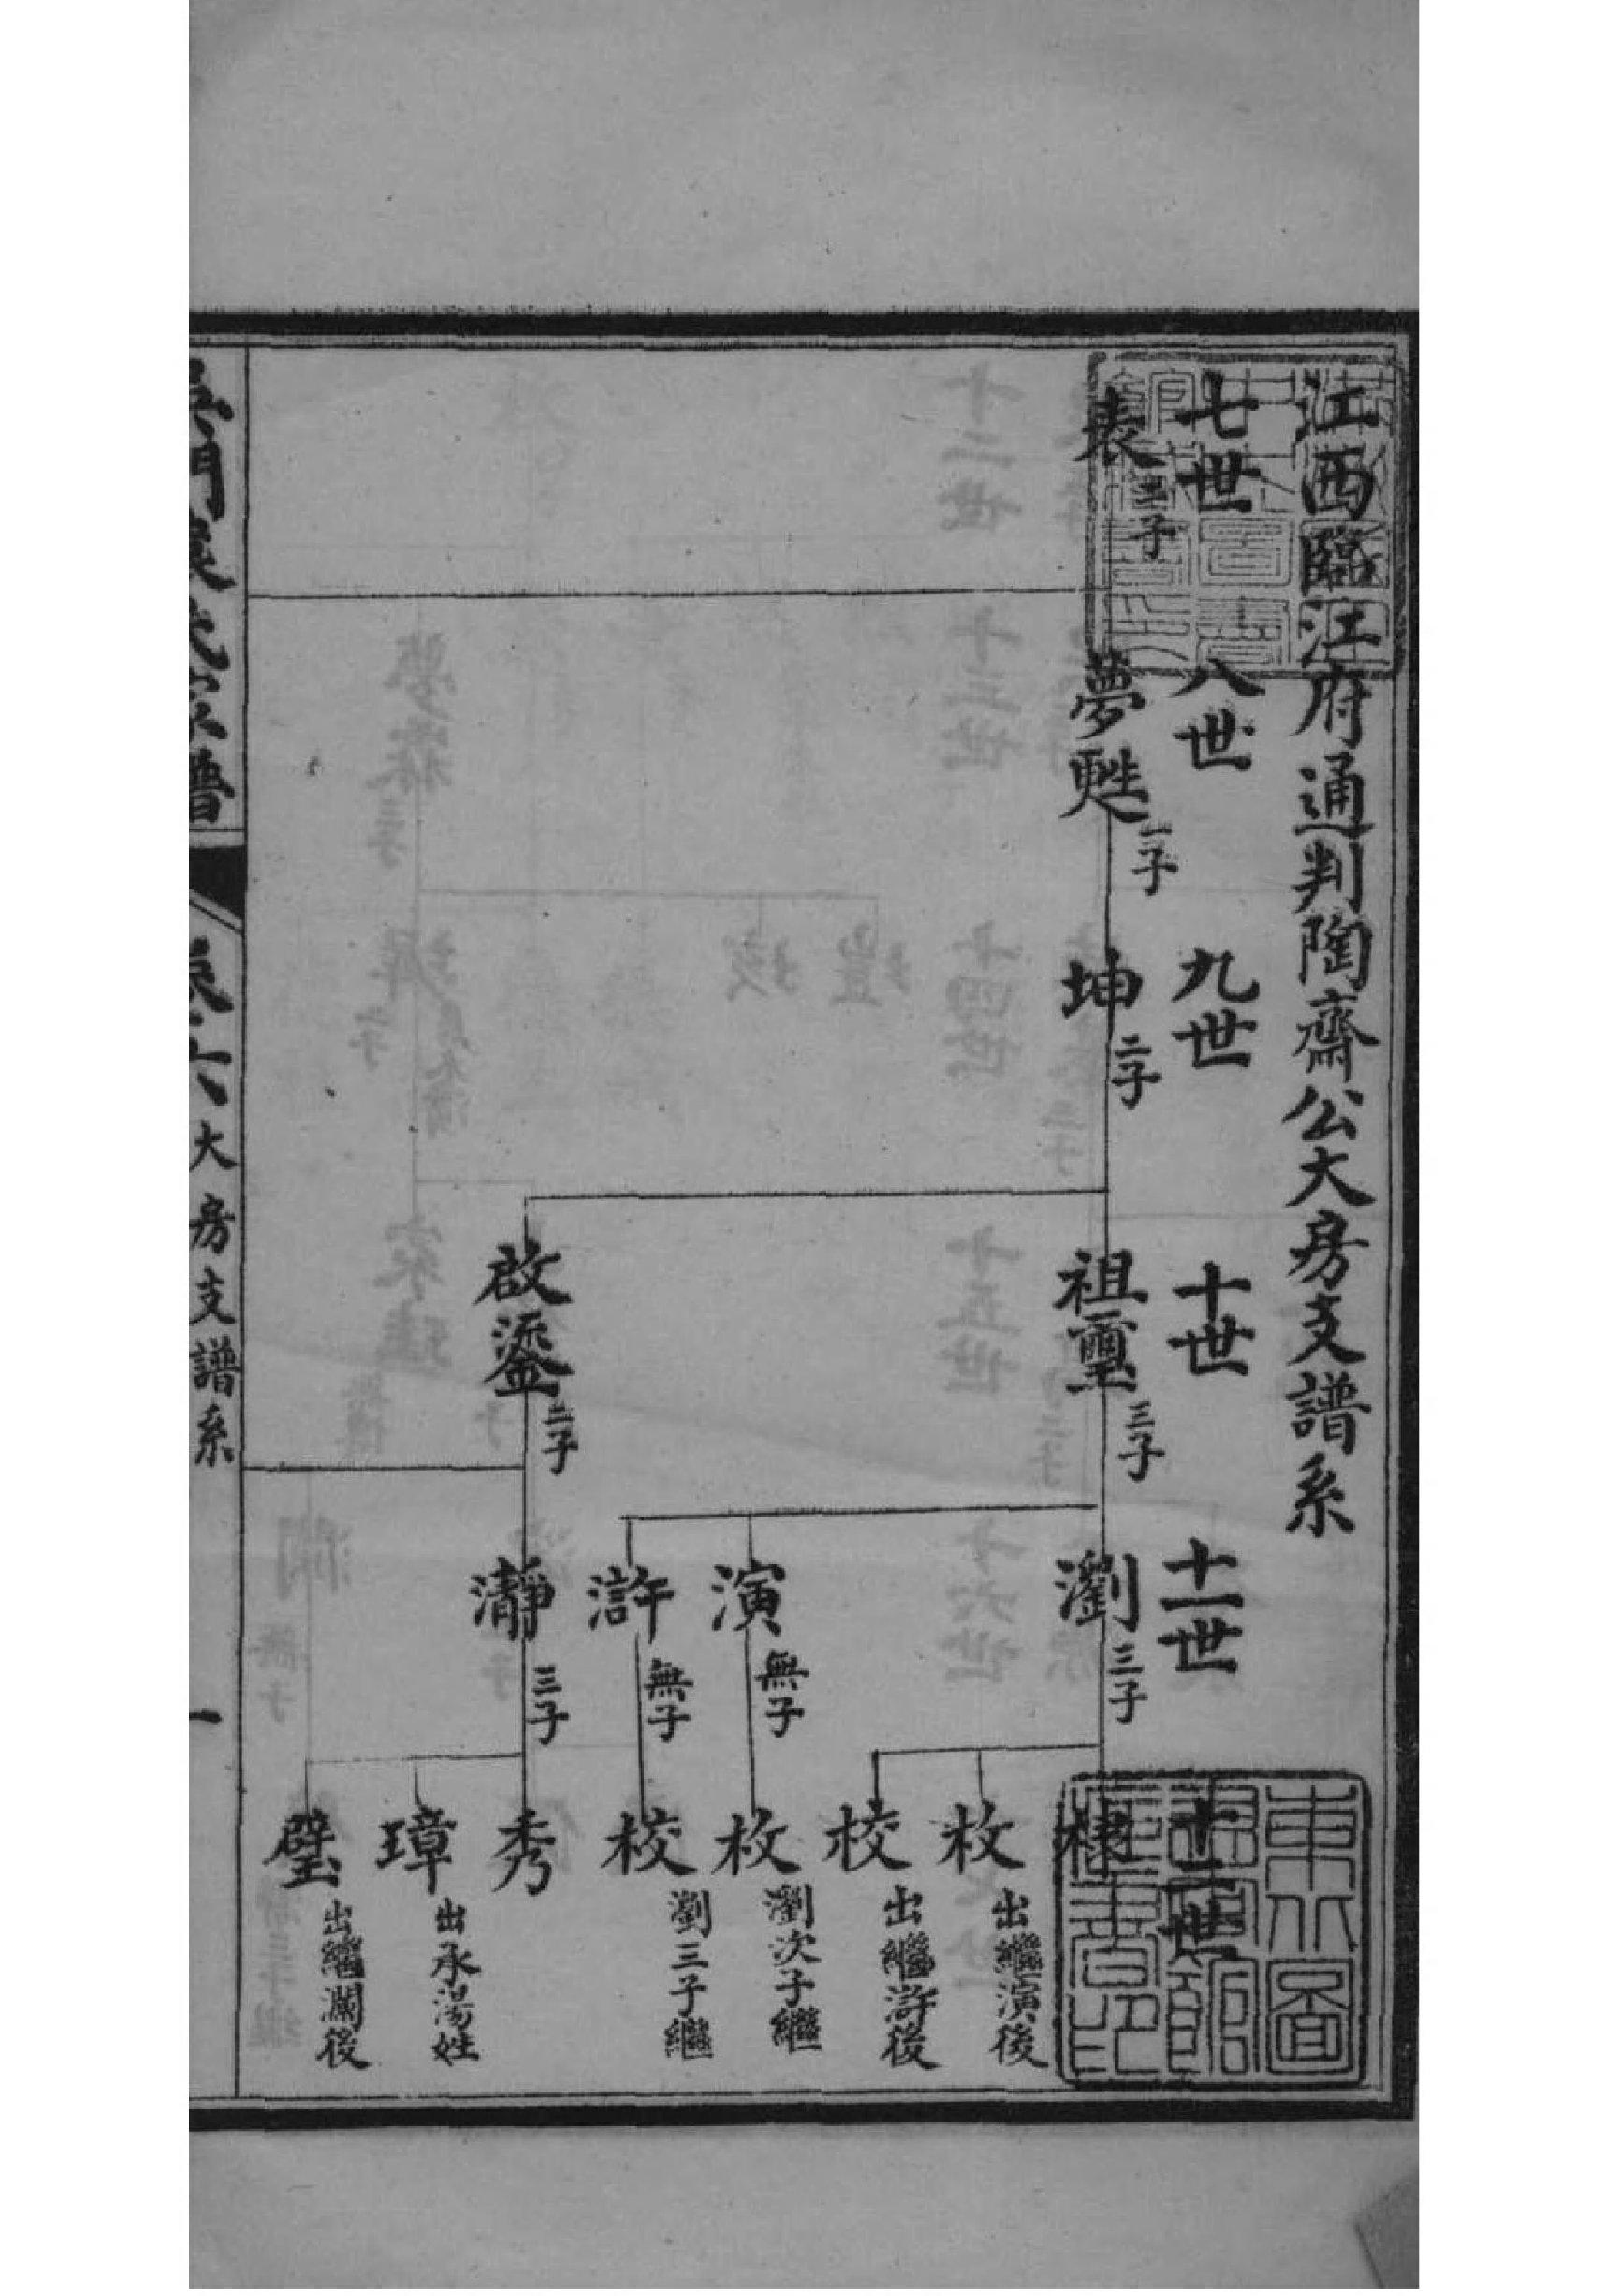 江西臨江府通判陶齋公大房支譜系
七世
八世
九世
十世
十一世
十二世
表
夢甦
一子
坤
二子
祖璽
三子
瀏
三子
棣
枚
出繼演後
校
出繼滸後
演
無子
枚
瀏次子繼
滸
無子
校
瀏三子繼
啟
瀞
三子
秀
璋
出承湯姓
璧
出繼瀾後
吳門袁氏家譜
卷六
大房支譜系
一
東方圖書館